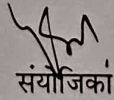 संयोजिकां